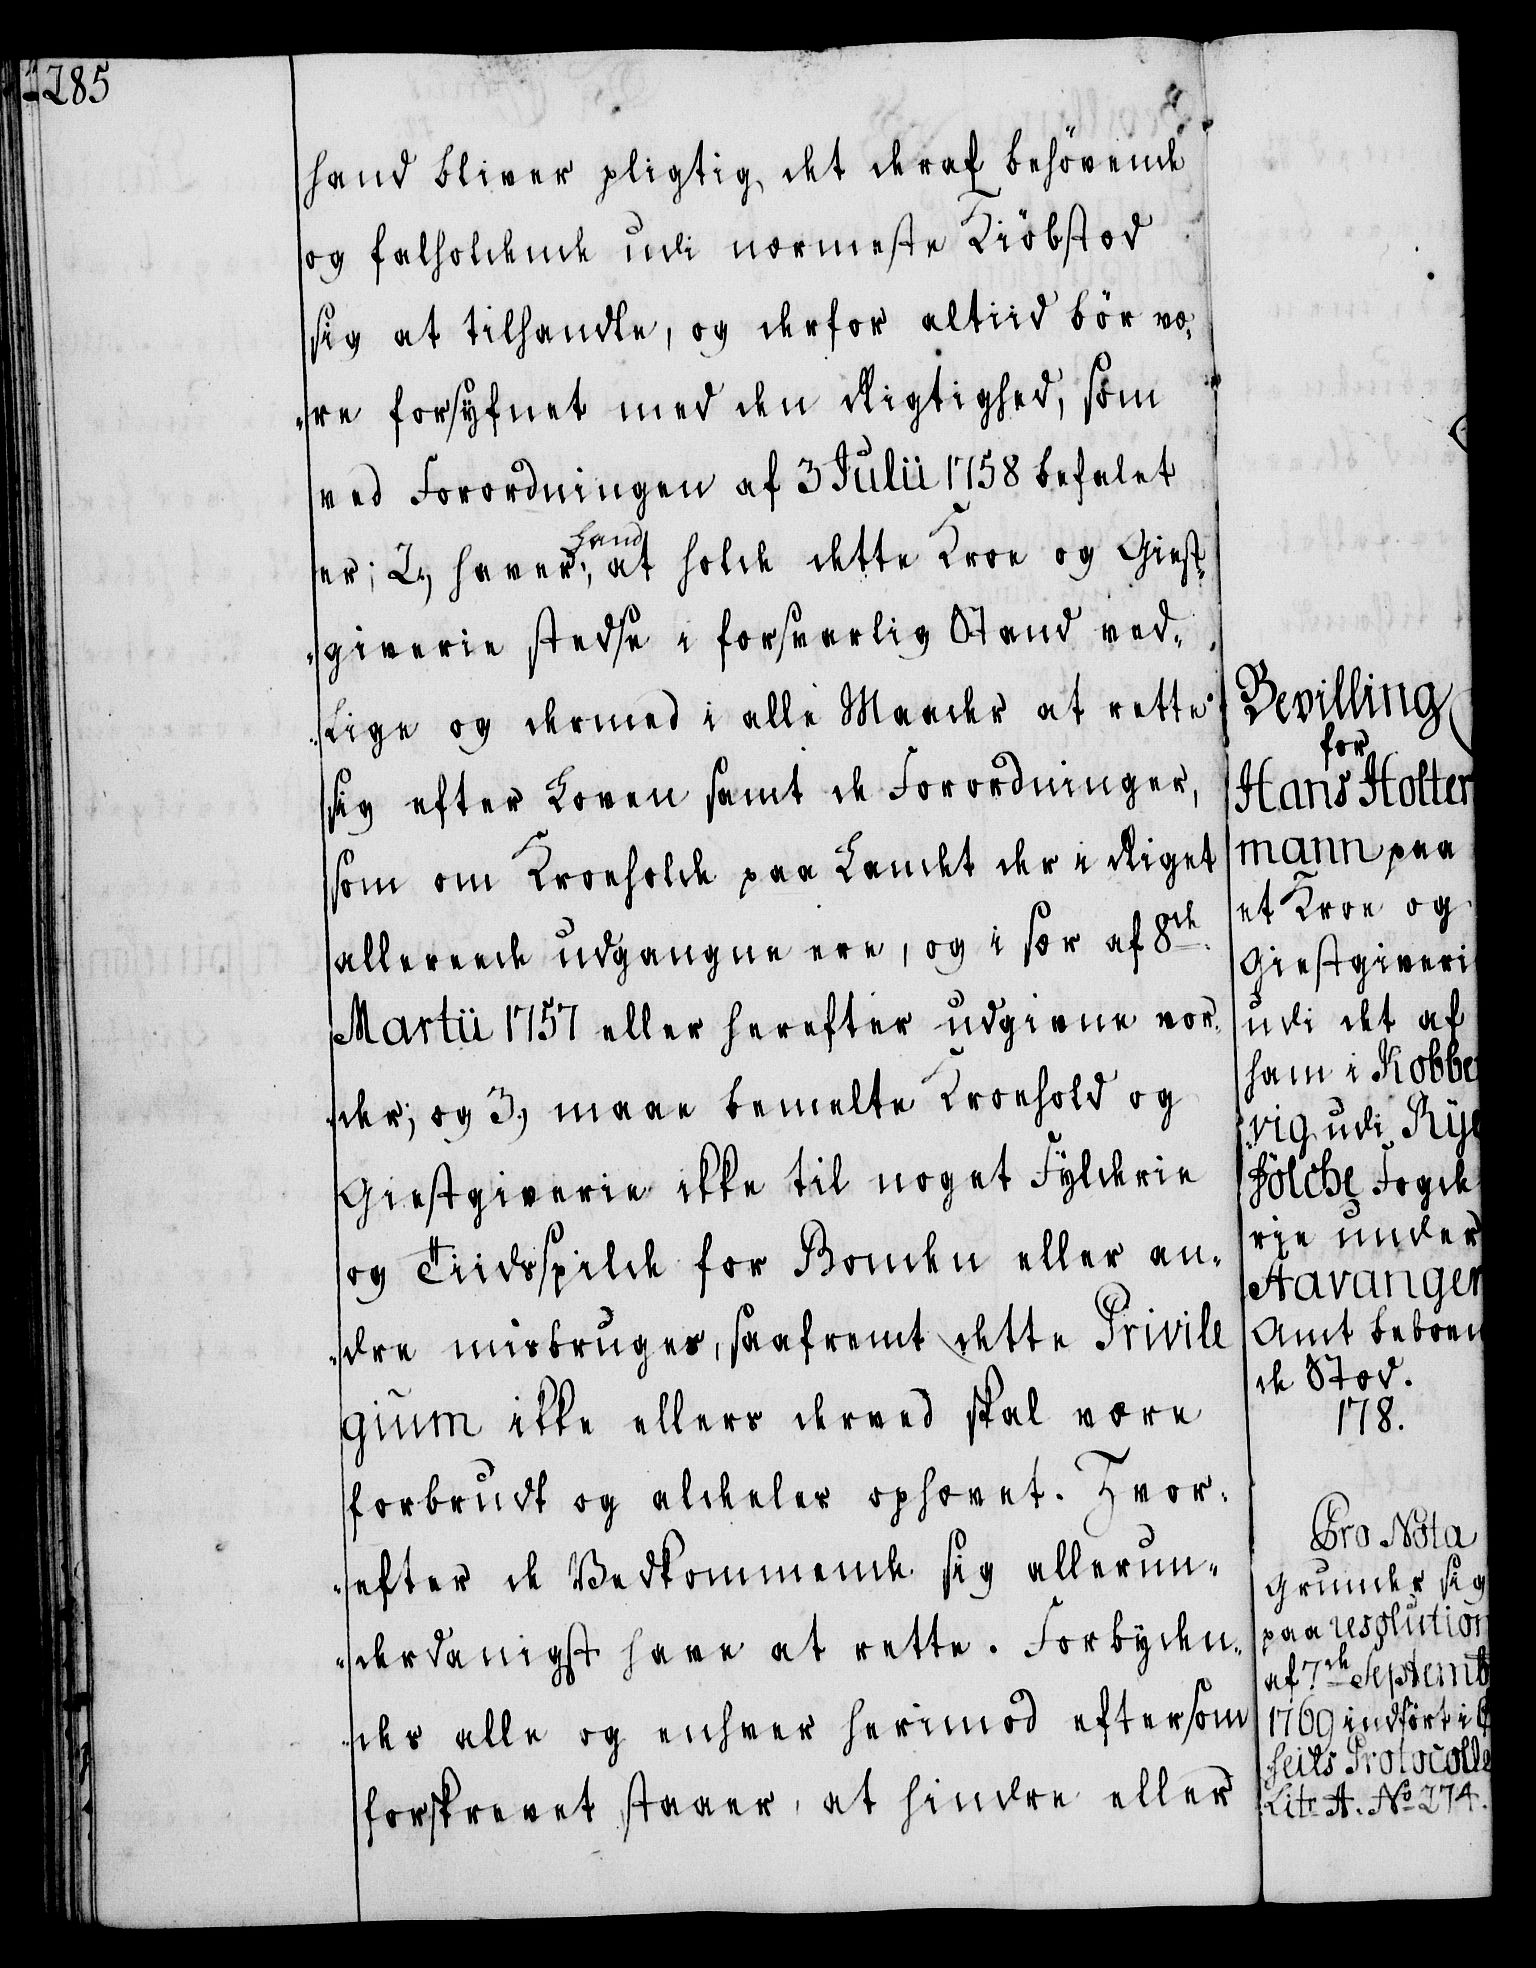 285
hand bliver pligtig, det deraf behövende
og falholdende udi nærmeste Kiöbstæd
sig at tilhandle, og derfor altiid bör væ„
„re forsyfnet med den Rigtighed, som
ved Forordningen af 3 Julii 1758 befalet
er; 2, haver hand, at holde dette Kroe og Giest„
„giverie stedse i forsvarlig Stand ved„
„lige og dermed i alle Maader at rette
sig efter Loven samt de Forordninger,
som om Kroehold paa Landet der i Riget
allereede udgangne ere, og i sær af 8de
Martii 1757 eller herefter udgivne vor„
„der; og 3, maae bemelte Kroehold og
Giestgiverie ikke til noget Fylderie
og Tiidsspilde for Bonden eller an„
„dre misbruges, saafremt dette Privile
gium ikke ellers derved skal være
forbrudt og aldeeles ophævet. Hvor„
„efter de Vedkommende sig allerun„
„derdanigst have at rette. Forbyden„
„des alle og enhver herimod eftersom
forskrevet staaer, at hindre eller
Bevilling
for
Hans Holter
mann paa
et Kroe og
Giestgiveri
udi det af
ham i Kobbe
„vig udi Rye
fölche Fogde
rie under
Stavanger
Amt beboen
de Stæd.
178.
Pro Nota
grunder sig
paa resolution
af 7de Septemb
1769 indfört i
Lit: A. No 274.